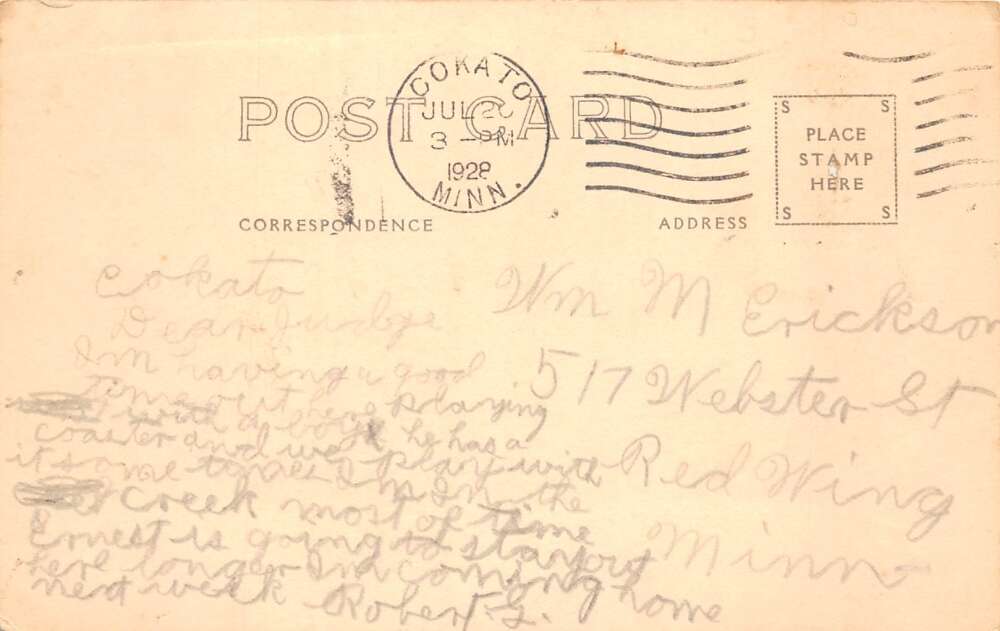 POST CARD
COKATO
JUL 20
3 - PM
1928
MINN.
CORRESPONDENCE
ADDRESS
S S
PLACE
STAMP
HERE
S S
Cokato
Dear Judge
Im having a good
time out here playing
with a boy he has a
coaster and we play with
it some times Im In the
creek most of time
Ernest is going to stay out
here longer Im coming home
next week Robert. G.
Wm M Erickson
517 Webster St
Red Wing
Minn